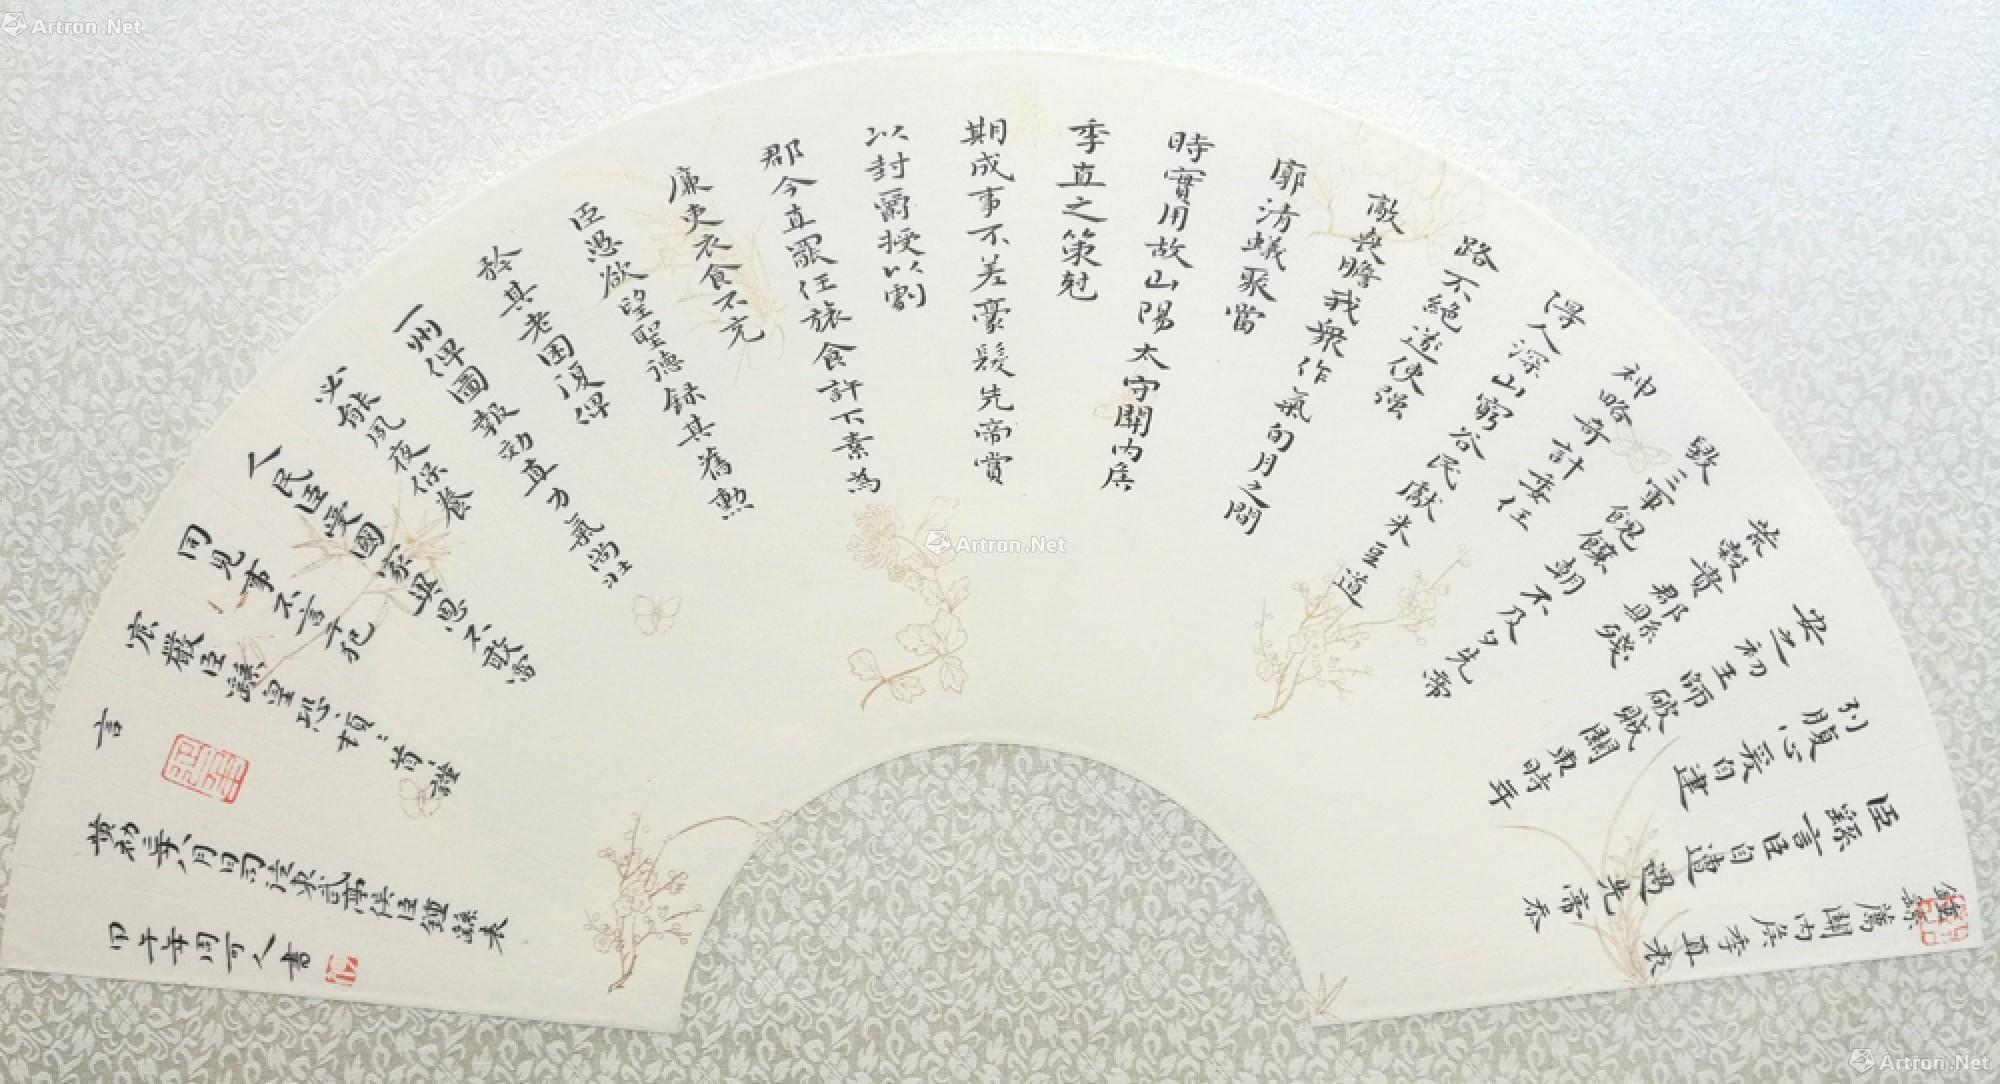 鍾繇薦關內侯季直表
臣繇言臣自遭遇先帝忝
列腹心爰自建
安之初王師破賊關東時年
荒穀貴郡縣殘
毀三軍餽饟朝不及夕先帝
神略奇計委任
得人深山窮谷民獻米豆道
路不絕遂使強
敵喪膽我衆作氣旬月之間
廓清蟻聚當
時實用故山陽太守關內侯
季直之策尅
期成事不差豪髮先帝賞
以封爵授以劇
郡今直罷任旅食許下素為
廉吏衣食不充
臣愚欲望聖德錄其舊勳
矜其老困復俾
一州俾圖報效直力氣尚壯
必能夙夜保養
人民臣受國家異恩不敢雷
同見事不言干犯
宸嚴臣繇皇恐頓〻首〻謹
言
黃初二年八月日司徒東武亭侯臣鍾繇表
甲午年周可人書
Artron.Net
Artron.Net
Artron.Net